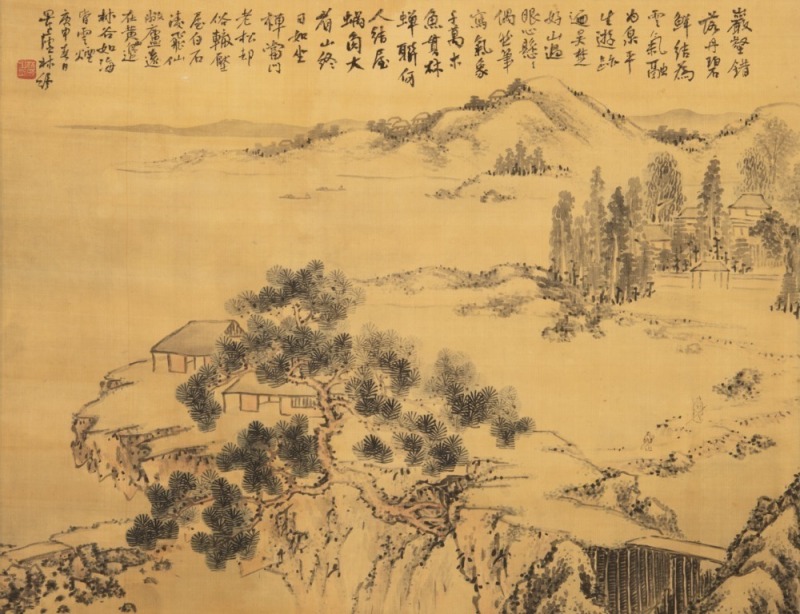 巖壑錯
落丹碧
鮮結為
雲氣融
為泉平
生遊跡
遍吳楚
好山過
眼心懸〻
偶然筆
寫氣象
千萬木
魚貫林
蟬聯何
人結屋
蝸角大
看山終
日如坐
禪當門
老松却
俗轍壓
屋白石
淩飛仙
敝廬遠
在黃
林谷如海
皆雲煙
庚申春日
林紓